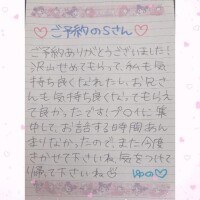 ♡ご予約のSさん♡
ご予約ありがとうございました!
沢山せめてもらって、私も気
持ち良くなれたし、お兄さ
んも気持ち良くなってもらえ
て良かったです!プロfに集
中して、お話する時間あん
まりなかったので、また今度
きかせて下さいね。気をつけて
帰って下さいね☺
ゆの♡